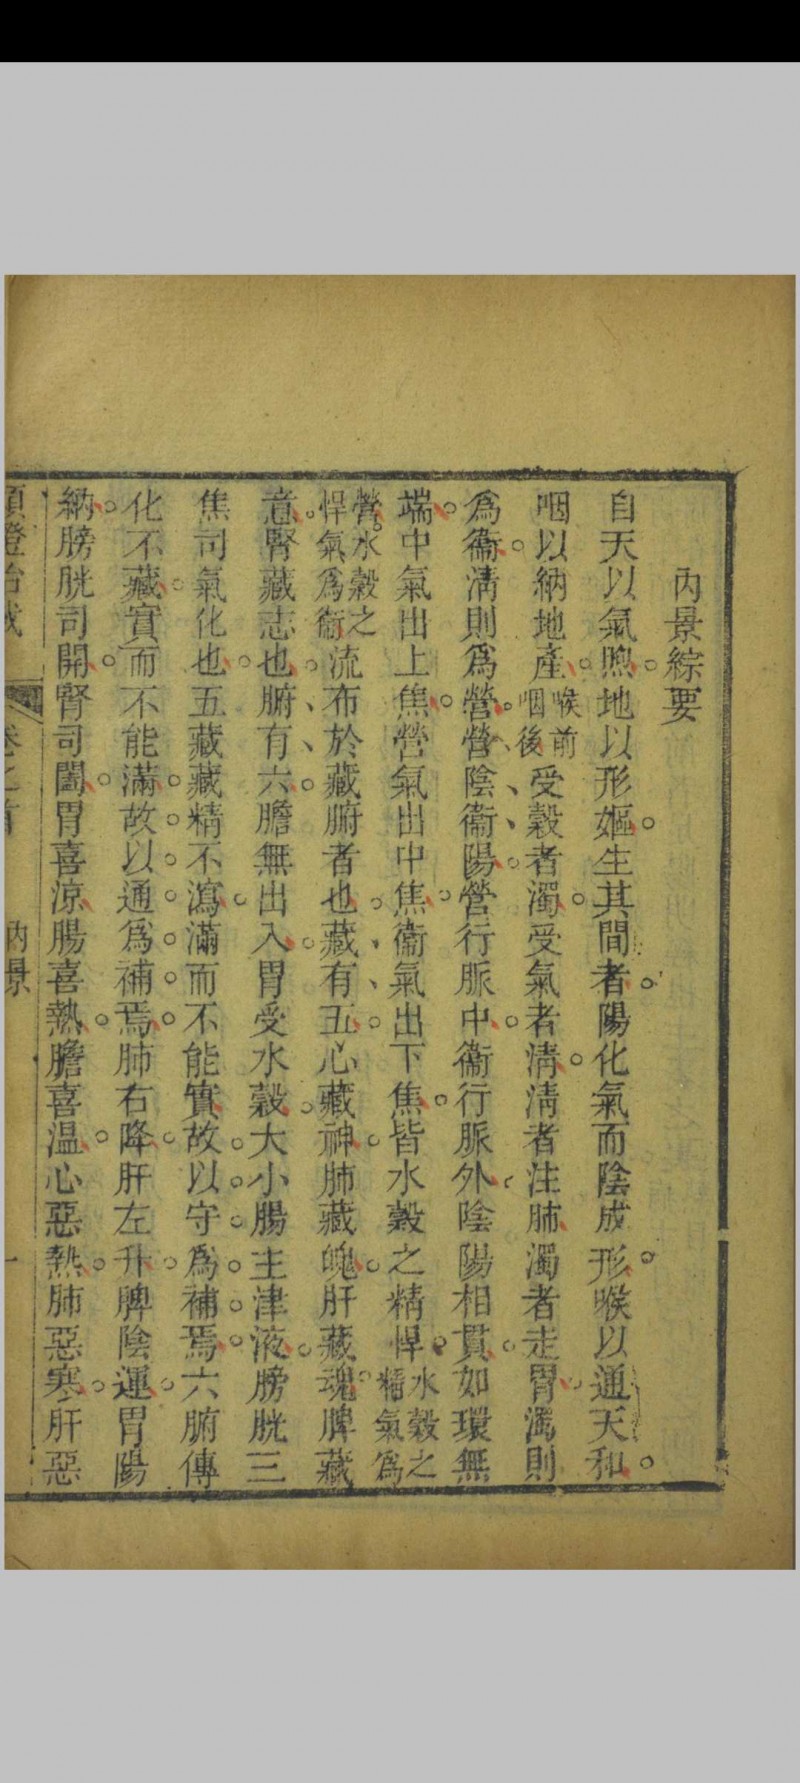 內景綜要
自天以氣煦地以形嫗生其間者陽化氣而陰成形喉以通天和
咽以納地產喉前咽後受穀者濁受氣者清清者注肺濁者走胃濁則
為衞清則爲營營陰衞陽營行脈中衞行脈外陰陽相貫如環無
端中氣出上焦營氣出中焦衞氣出下焦皆水穀之精悍水穀之精氣爲
營水穀之悍氣爲衞流布於藏腑者也藏有五心藏神肺藏魄肝藏魂脾藏
意腎藏志也腑有六膽無出入胃受水穀大小腸主津液膀胱三
焦司氣化也五藏藏精不瀉滿而不能實故以守爲補焉六腑傳
化不藏實而不能滿故以通爲補焉肺右降肝左升脾陰運胃陽
納膀胱司開腎司闔胃喜涼腸喜熱膽喜温心惡熱肺惡寒肝惡
類證治裁
卷之首
內景
一